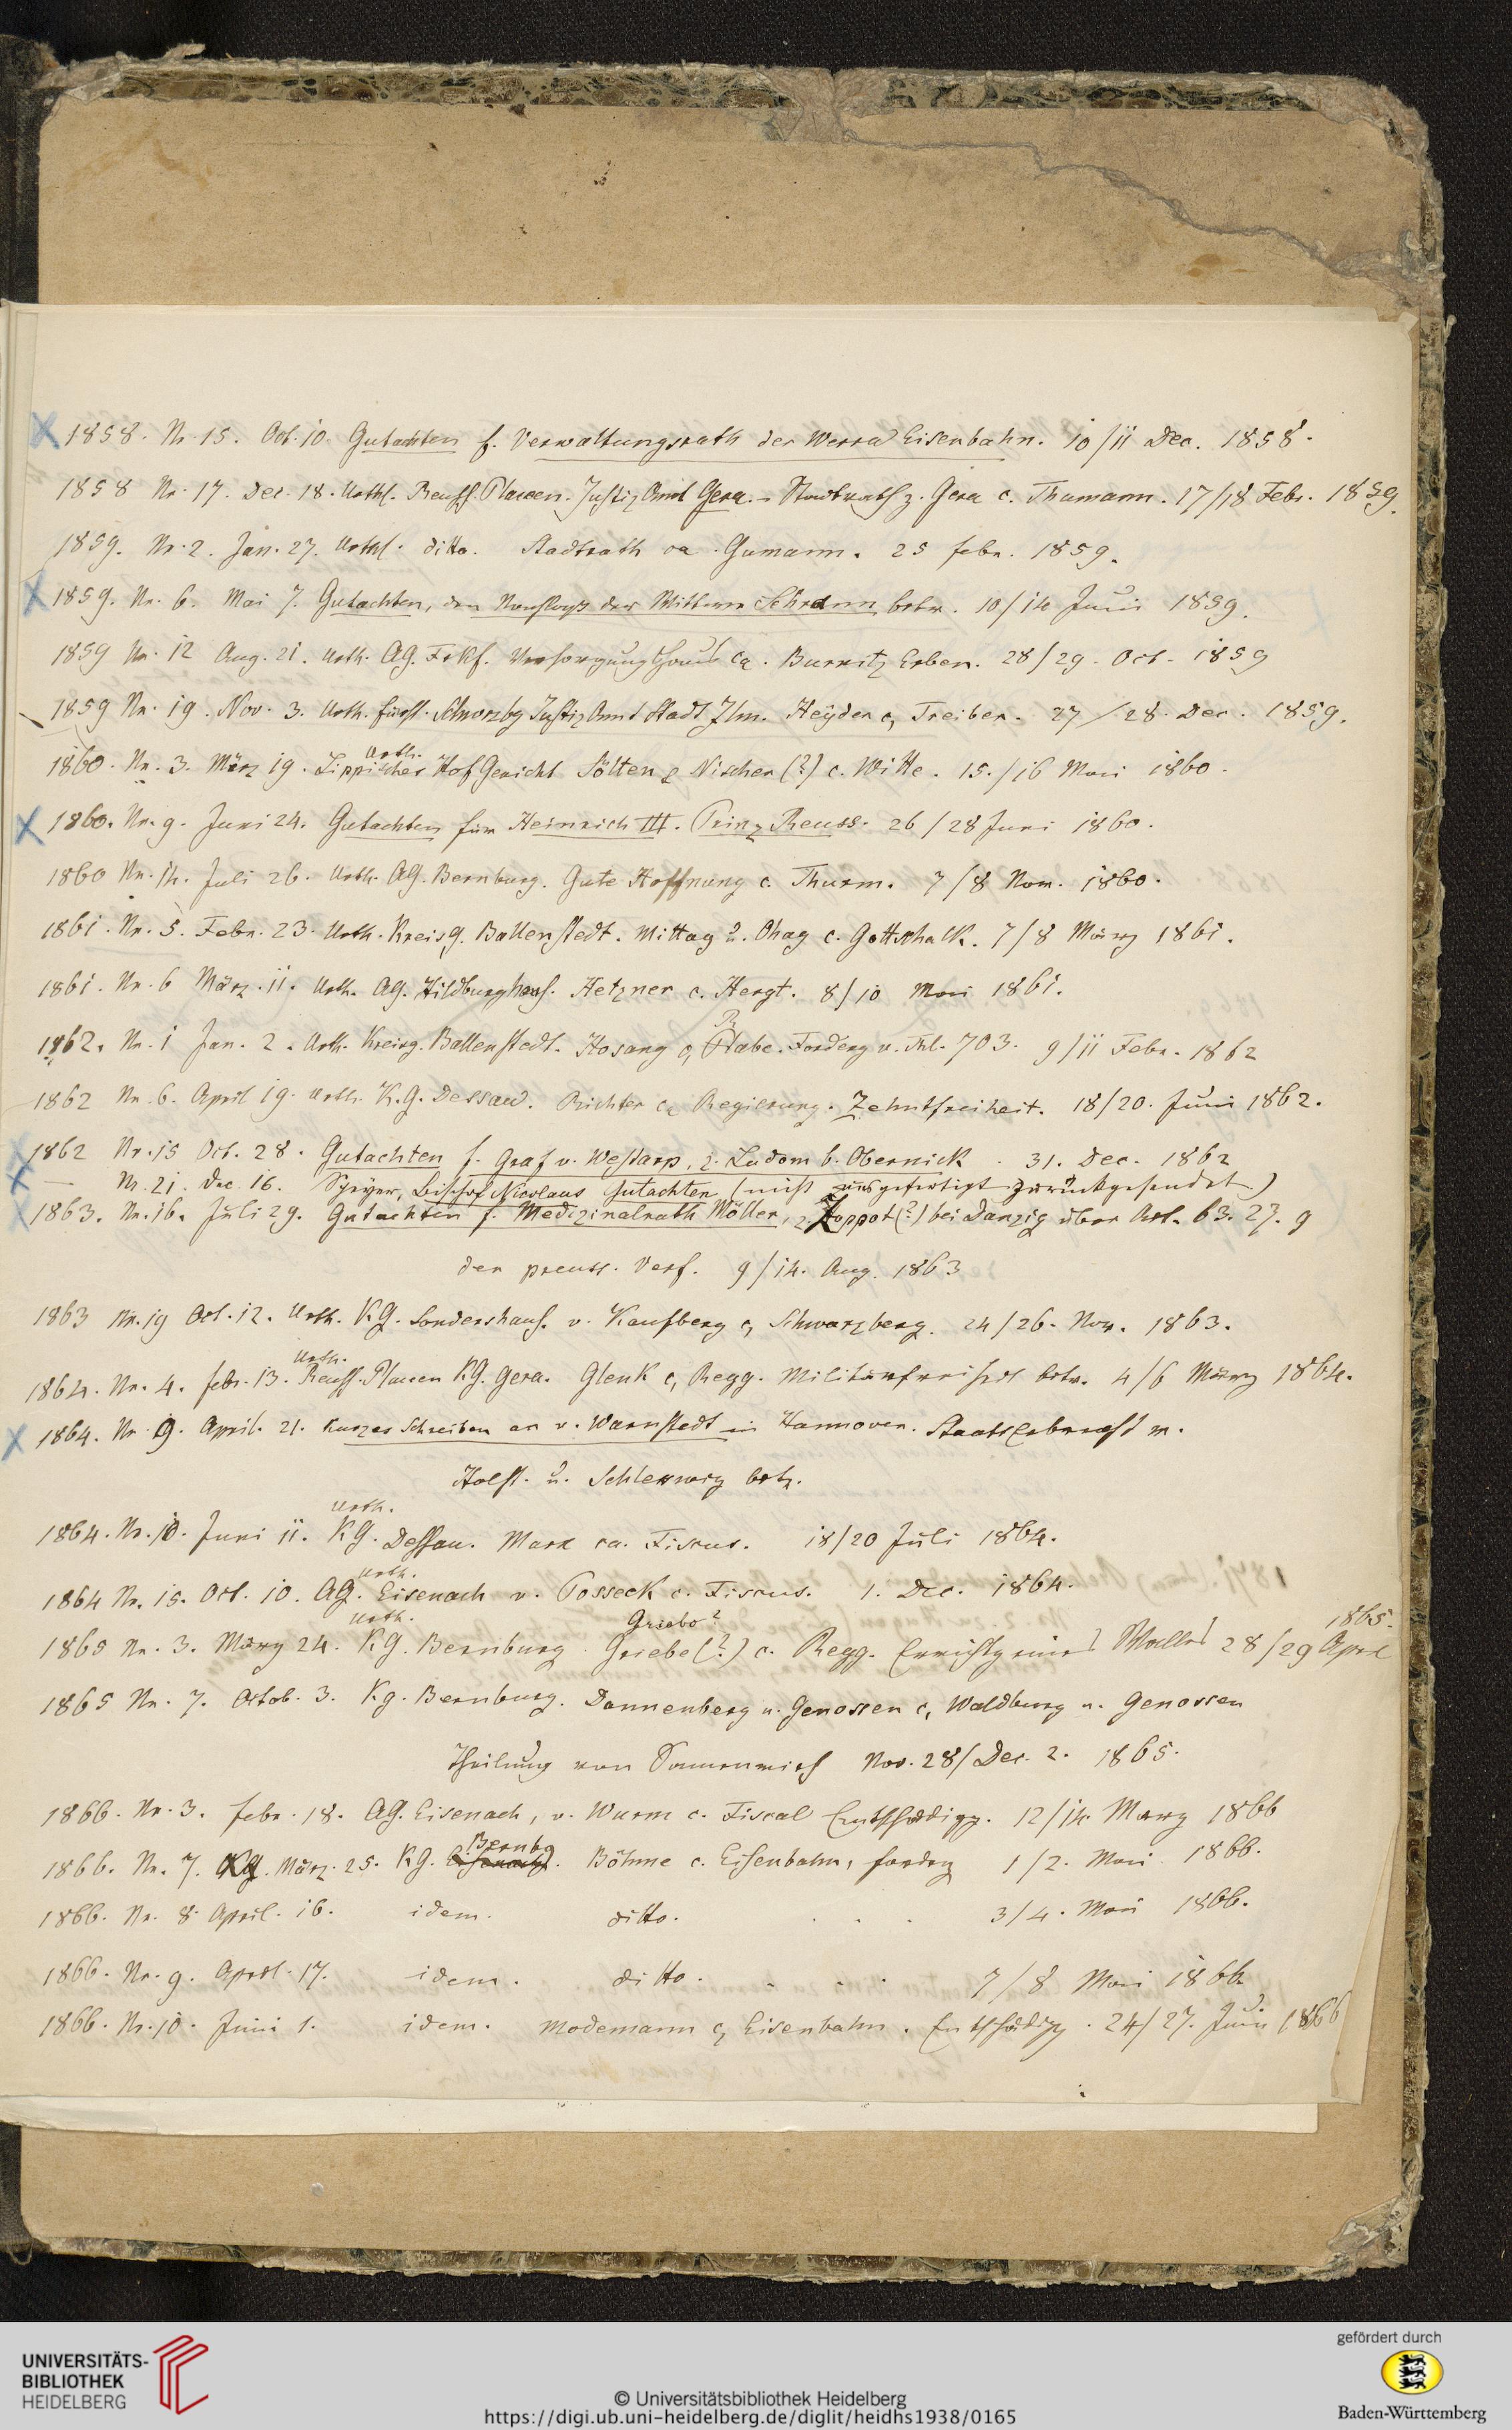 1858. Nr. 15. Oct. 10. Gutachten f. Verwaltungsrath der Werra Eisenbahn. 10/11 Dec. 1858.
1858 Nr. 17. Dec. 18. Urthl. Reuss. Plauen. Justiz Amt Gera. – Stadtrath z. Gera c. Thumann. 17/18 Febr. 1859.
1859. Nr. 2. Jan. 27. Urthl. ditto. Stadtrath ca. Gumann. 25 febr. 1859.
1859. Nr. 6. Mai 7. Gutachten, den der Wittwe betr. 10/14 Juni 1859.
1859 Nr. 12 Aug. 21. Urth. AG. Frkf. Versorgungshaus ca. Burnitz Erben. 28/29. Oct. 1859
1859 Nr. 19. Nov. 3. Urth. fürstl. Schwarzbg Justiz Amt Stadt Ilm. Heyder c, Treiber. 27/28. Dec. 1859.
Urth.
1860. Nr. 3. März 19. Lippisches Hof Gericht Sölten & Nischer (?) c. Witte. 15./16 Mai 1860.
1860. Nr. 9. Juni 24. Gutachten für Heinrich III. Prinz Reuss. 26/28 Juni 1860.
1860 Nr. 14. Juli 26. Urth. AG. Bernburg. Gute Hoffnung c. Thurm. 7/8 Nov. 1860.
1861. Nr. 5. Febr. 23. Urth. Kreisg. Ballenstedt. Mittag u. Ohag c. Gottschalk. 7/8 März 1861.
1861. Nr. 6 März. 11. Urth. AG. Hildburghaus. Hetzner c. Hergt. 8/10 Mai 1861.
R
1862. Nr. 1 Jan. 2. Urth. Kreisg. Ballenstedt. Hosang c, Rabe. Forderg v. Thl. 703. 9/11 Febr. 1862
1862 Nr. 6. April 19. Urth. K.G. Dessau. Richter ca Regierung. Zehntfreiheit. 18/20. Juni 1862.
1862 Nr. 15 Oct. 28. Gutachten f. Graf v. Westarp, z. Ludom b. Obernick. 31. Dec. 1862
— Nr. 21. Dec. 16. Speyer, Bischof Nicolaus Gutachten (nicht ausgefertigt zurückgesendet.)
1863. Nr. 16. Juli 29. Gutachten f. Medizinalrath Möller, z. Zoppot (?) bei Danzig über Art. 63. 27. 9
der preuss. Verf. 9/14. Aug. 1863
1863 Nr. 19 Oct. 12. Urth. KG. Sondershaus. v. Kaufberg c, Schwarzberg. 24/26. Nov. 1863.
Urth.
1864. Nr. 4. febr. 13. Reuss. Plauen KG. Gera. Glenk c, Regg. Militärfreiheit betr. 4/6 März 1864.
1864. Nr. 9. April. 21. Kurzes Schreiben an v. Warnstedt in Hannover. Staatserbrecht v.
Holst. u. Schleswig betr.
Urth.
1864. Nr. 10. Juni 11. KG. Dessau. Marx ca. Fiscus. 18/20 Juli 1864.
Urth.
1864 Nr. 15. Oct. 10. AG. Eisenach v. Posseck c. Fiscus. 1. Dec. 1864.
Urth. Griebo? 1865.
1865 Nr. 3. März 24. KG. Bernburg. Griebe (?) c. Regg. Errichtg eines Walles 28/29 April
1865 Nr. 7. Octob. 3. Kg. Bernburg. Dannenberg u. Genossen c, Waldburg u. Genossen
Theilung von Nov. 28/Dec. 2. 1865.
1866. Nr. 3. febr. 18. AG. Eisenach, v. Wurm c. Fiscal Entschädigg. 12/14 März 1866
Bernbg
1866. Nr. 7. KG. März. 25. KG. Eisenach. Böhme c. Eisenbahn, fordrg 1/2. Mai 1866.
1866. Nr. 8. April. 16. idem. ditto. . . . 3/4. Mai 1866.
1866. Nr. 9. April. 17. idem. ditto. . . . 7/8 Mai 1866
1866. Nr. 10. Juni 1. idem. Modemann c, Eisenbahn. Entschädigg. 24/27. Juni 1866
UNIVERSITÄTS-
BIBLIOTHEK
HEIDELBERG
© Universitätsbibliothek Heidelberg
https://digi.ub.uni-heidelberg.de/diglit/heidhs1938/0165
gefördert durch
Baden-Württemberg